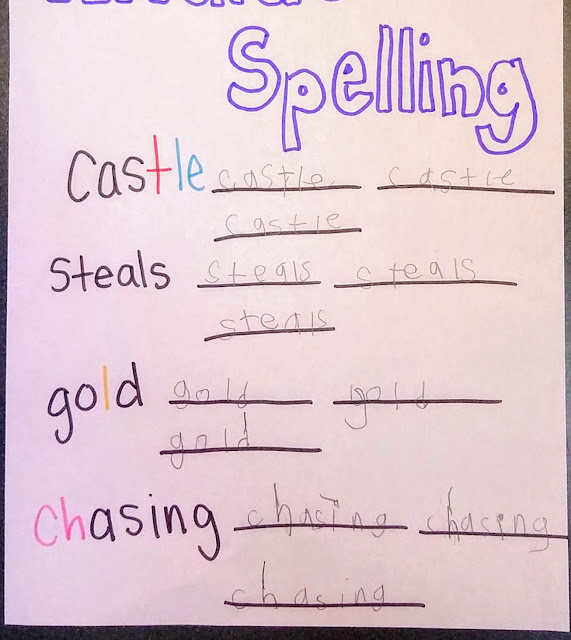 Spelling
Castle castle castle
castle
Steals steals cteals
steals
gold gold gold
gold
chasing chasing chacing
chasing